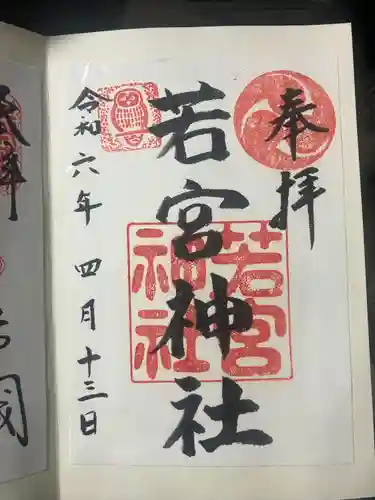 奉拝
若宮神社
若宮神社
令和六年 四月十三日
國